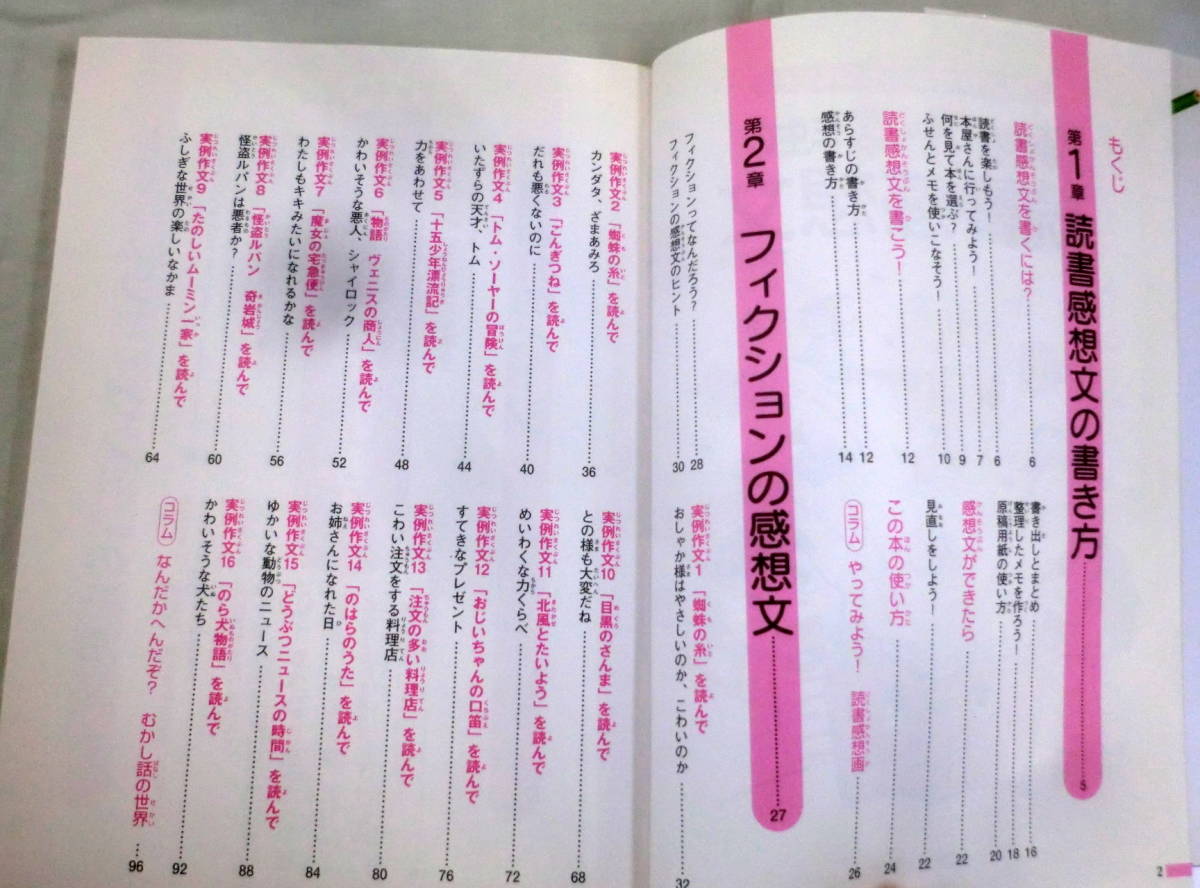 もくじ
第1章 読書感想文の書き方 5
読書感想文を書くには? 6
読書を楽しもう! 6
本屋さんに行ってみよう! 7
何を見て本を選ぶ? 9
ふせんとメモを使いこなそう! 10
読書感想文を書こう! 12
あらすじの書き方 12
感想の書き方 14
書き出しとまとめ 16
整理したメモを作ろう! 18
原稿用紙の使い方 20
感想文ができたら 22
見直しをしよう! 22
この本の使い方 24
コラム やってみよう! 読書感想画 26
第2章 フィクションの感想文 27
フィクションってなんだろう? 28
フィクションの感想文のヒント 30
実例作文1 「蜘蛛の糸」を読んで
おしゃか様はやさしいのか、こわいのか 32
実例作文2 「蜘蛛の糸」を読んで
カンダタ、ざまあみろ 36
実例作文3 「ごんぎつね」を読んで
だれも悪くないのに 40
実例作文4 「トム・ソーヤーの冒険」を読んで
いたずらの天才、トム 44
実例作文5 「十五少年漂流記」を読んで
力をあわせて 48
実例作文6 「物語 ヴェニスの商人」を読んで
かわいそうな悪人、シャイロック 52
実例作文7 「魔女の宅急便」を読んで
わたしもキキみたいになれるかな 56
実例作文8 「怪盗ルパン 奇岩城」を読んで
怪盗ルパンは悪者か? 60
実例作文9 「たのしいムーミン一家」を読んで
ふしぎな世界の楽しいなかま 64
実例作文10 「目黒のさんま」を読んで
との様も大変だね 68
実例作文11 「北風とたいよう」を読んで
めいわくな力くらべ 72
実例作文12 「おじいちゃんの口笛」を読んで
すてきなプレゼント 76
実例作文13 「注文の多い料理店」を読んで
こわい注文をする料理店 80
実例作文14 「のはらのうた」を読んで
お姉さんになれた日 84
実例作文15 「どうぶつニュースの時間」を読んで
ゆかいな動物のニュース 88
実例作文16 「のら犬物語」を読んで
かわいそうな犬たち 92
コラム なんだかへんだぞ? むかし話の世界 96
2